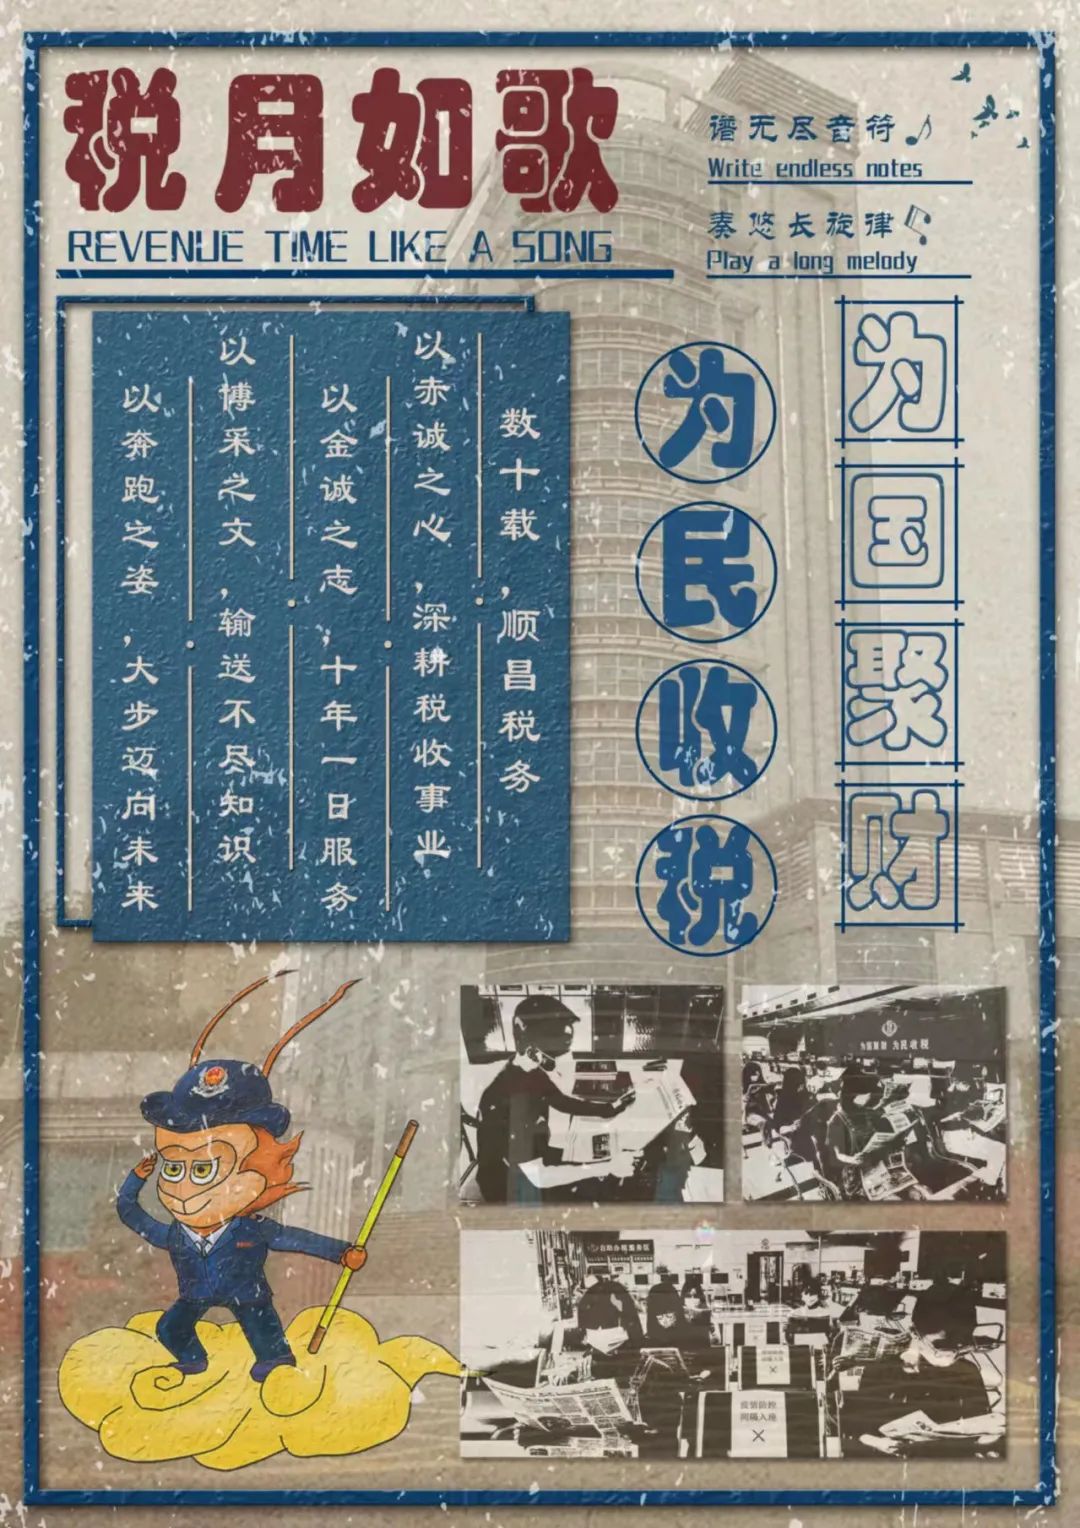 税月如歌
REVENUE TIME LIKE A SONG
谱无尽音符
Write endless notes
奏悠长旋律
Play a long melody
为国聚财
为民收税
数十载，顺昌税务
以赤诚之心，深耕税收事业
以金诚之志，十年一日服务
以博采之文，输送不尽知识
以奔跑之姿，大步迈向未来
为国聚财 为民收税
自助办税服务区
疫情防控
间隔入座